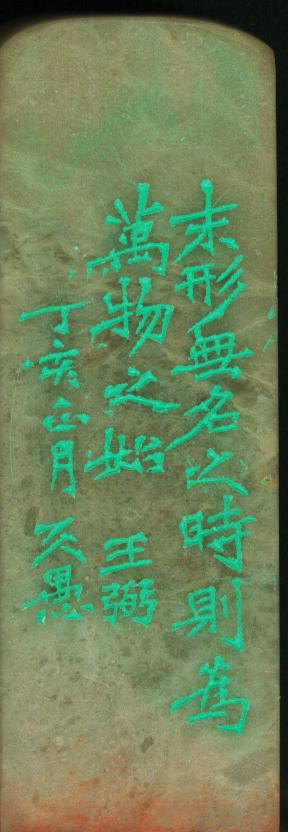 未形無名之時則為
萬物之始 王弼
丁亥正月 大愚